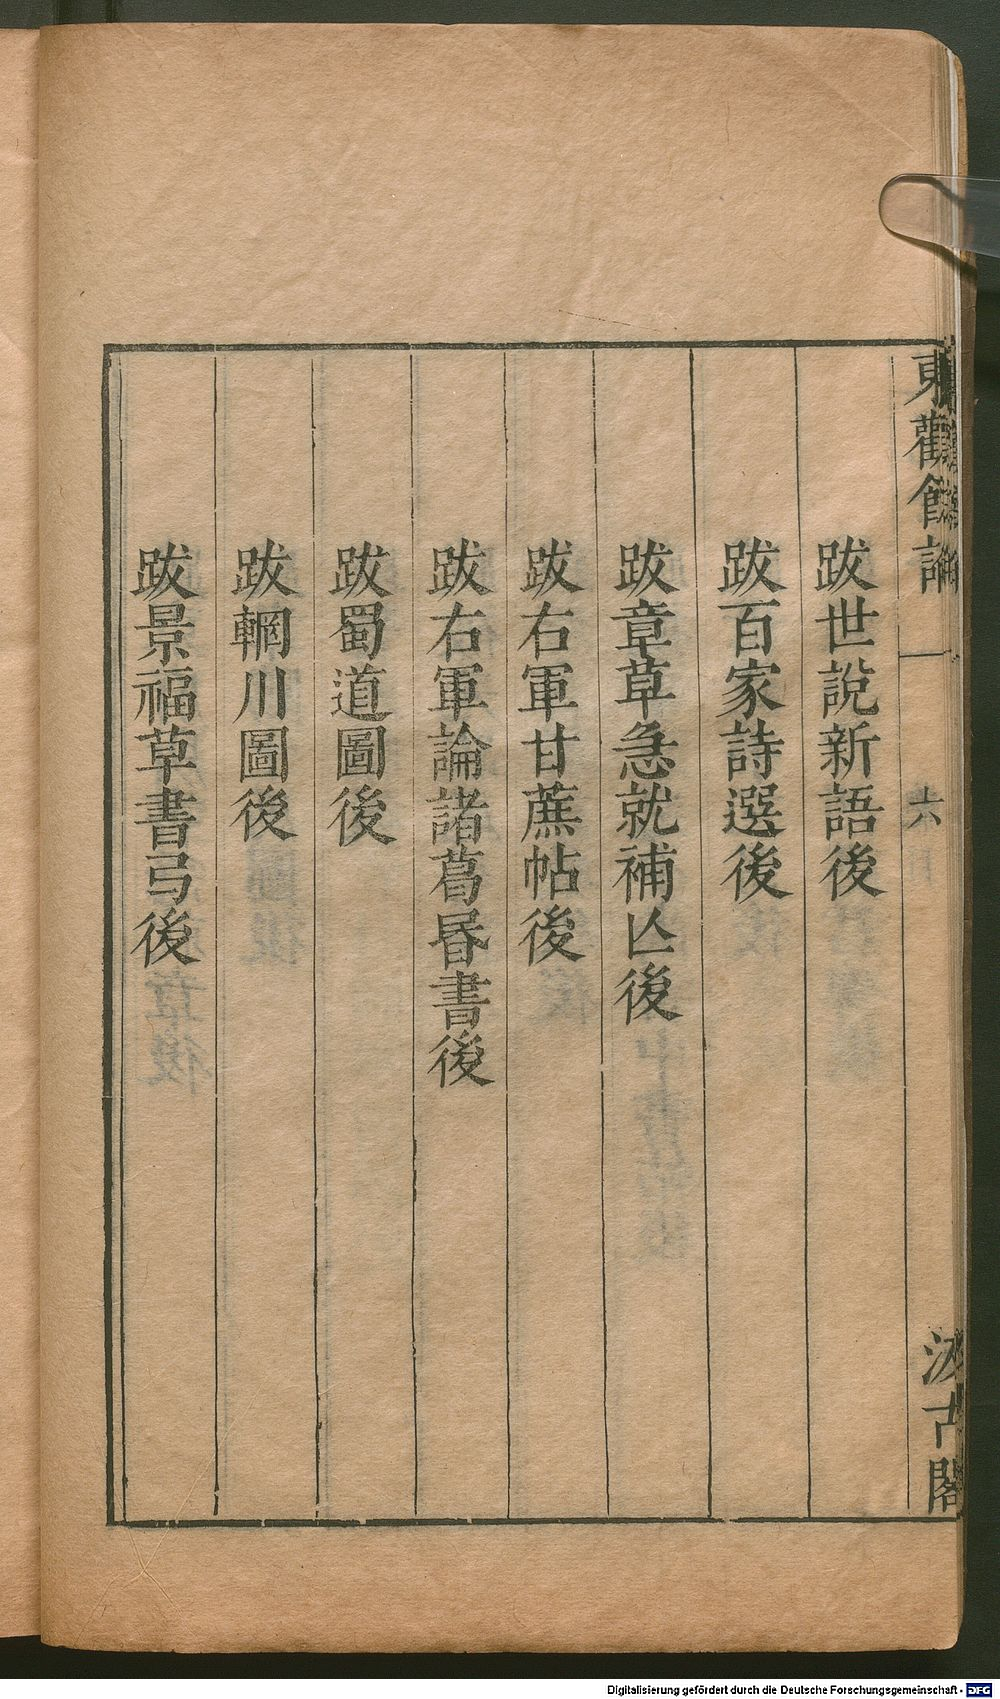 東觀餘論
一
六
汲古閣
跋世說新語後
跋百家詩選後
跋章草急就補亾後
跋右軍甘蔗帖後
跋右軍論諸葛昬書後
跋蜀道圖後
跋輞川圖後
跋景福草書弓後
Digitalisierung gefördert durch die Deutsche Forschungsgemeinschaft - DFG